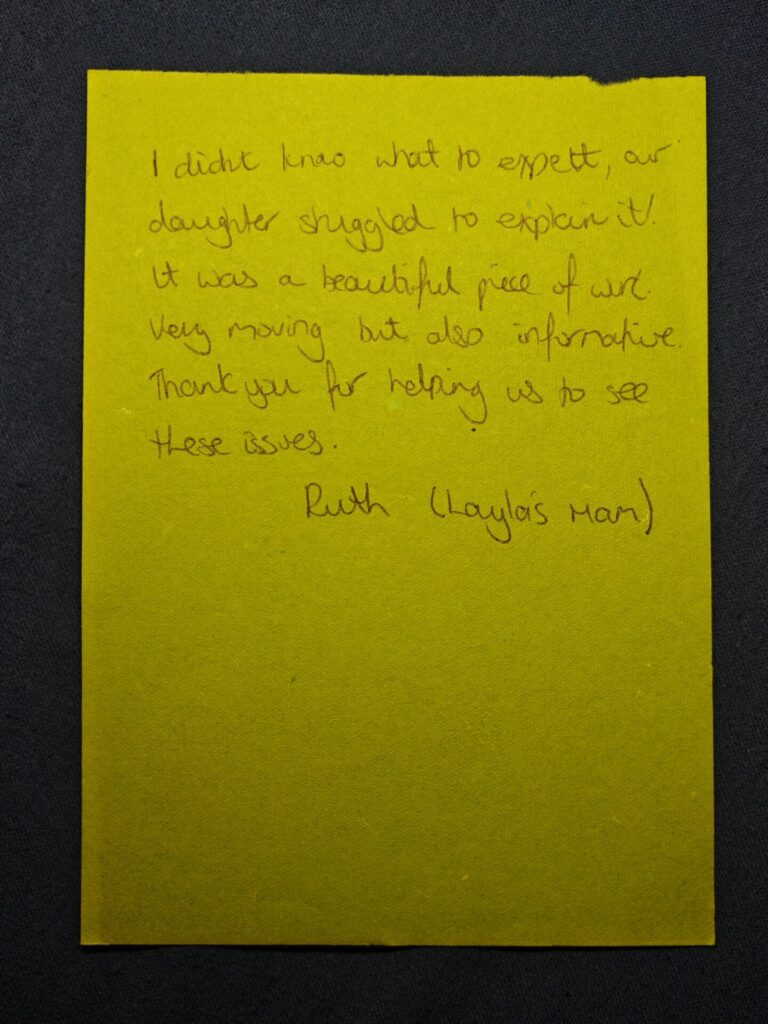 I didn't know what to expect, our
daughter struggled to explain it!
It was a beautiful piece of work.
Very moving but also informative.
Thank you for helping us to see
these issues.
Ruth (Layla's Mam)